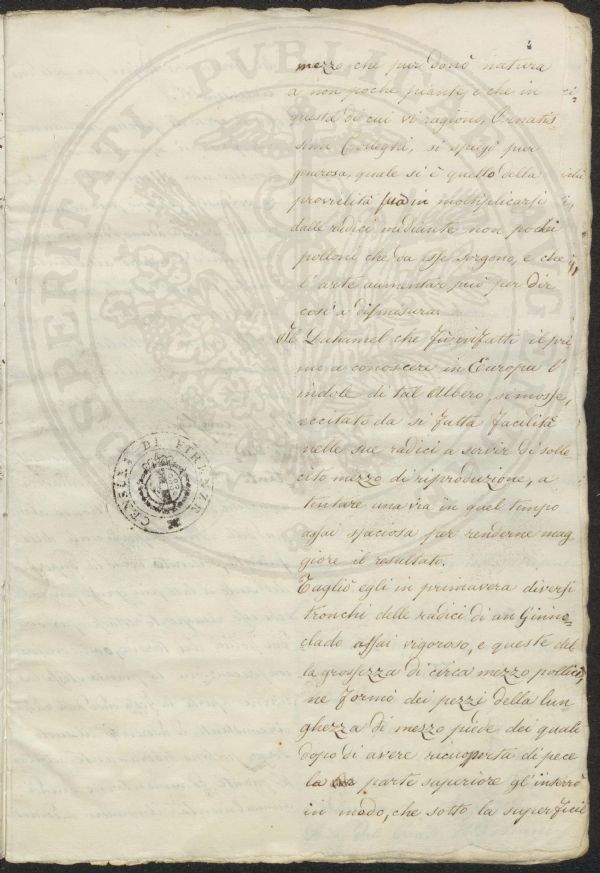 mezzo che pur donò natura
a non poche piante, e che in
questa di cui vi ragiono, Ornatis-
simi Colleghi, si spiegò pur
generosa, quale si è quello della
proclività sua in moltiplicarsi
dalle radici mediante non pochi
polloni che da esse sorgono, e che
l'arte aumentar può per dir
così a dismisura.
Il Duhamel che fù infatti il pri
mo a conoscere in Europa l'
indole di tal Albero, si mosse,
eccitato da si fatta facilità
nelle sue radici a servir di solle
cito mezzo di riproduzione, a
tentare una via in quel tempo
assai spaciosa per renderne mag
giore il resultato.
Tagliò egli in primavera diversi
tronchi delle radici di un Ginno-
clado assai vigoroso, e queste del
la grossezza di circa mezzo pollice,
ne formò dei pezzi della lun
ghezza di mezzo piede dei quali
dopo di avere ricuoperta di pece
la parte superiore gl'inserrò
in modo, che sotto la superficie
CENSURA DI FIRENZE
PROSPERITATI PVBLICAE